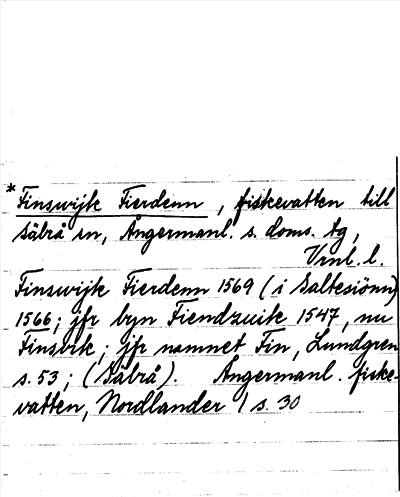 *Finswijk Fierdenn, fiskevatten till
Säbrå sn, Ångermanl. s. doms. tg,
Vrnl. l.
Finswijk Fierdenn 1569 (i Saltesiönn)
1566; jfr byn Fiendzuik 1547, nu
Finsvik; jfr namnet Fin, Lundgren
s. 53; (Säbrå). Ångermanl. fiske-
vatten, Nordlander 1 s. 30